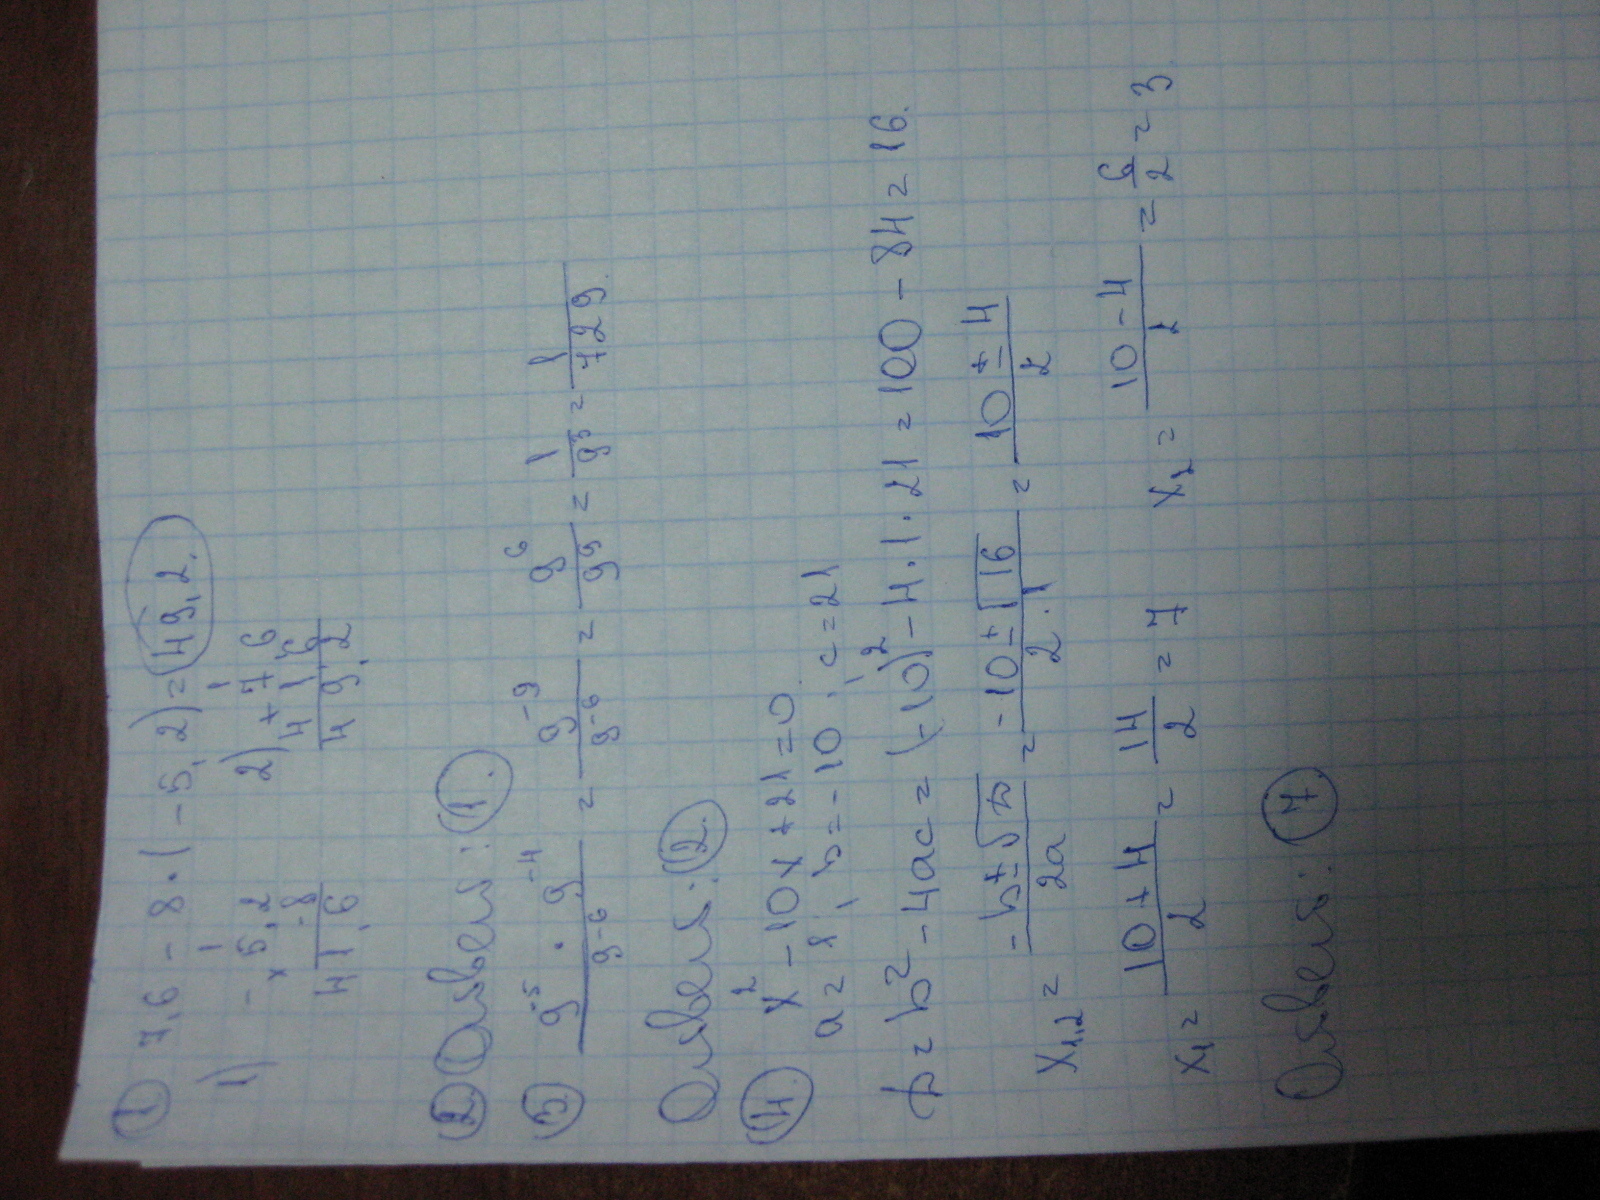 ① 7,6 - 8 · (-5,2) = 49,2.
1) -5,2 2) + 7 6
× -8 41 6
41,6 49,2
② Ответ: 1.
③ 9⁻⁵ · 9⁻⁴ / 9⁻⁶ = 9⁻⁹ / 9⁻⁶ = 9⁶ / 9⁹ = 1 / 9³ = 1 / 729.
Ответ: 2.
④ x² - 10x + 21 = 0.
a = 1, b = -10, c = 21
D = b² - 4ac = (-10)² - 4 · 1 · 21 = 100 - 84 = 16.
x₁,₂ = -b ± √D / 2a = -10 ± √16 / 2 · 1 = 10 ± 4 / 2
x₁ = 10 + 4 / 2 = 14 / 2 = 7 x₂ = 10 - 4 / 2 = 6 / 2 = 3
Ответ: 7.